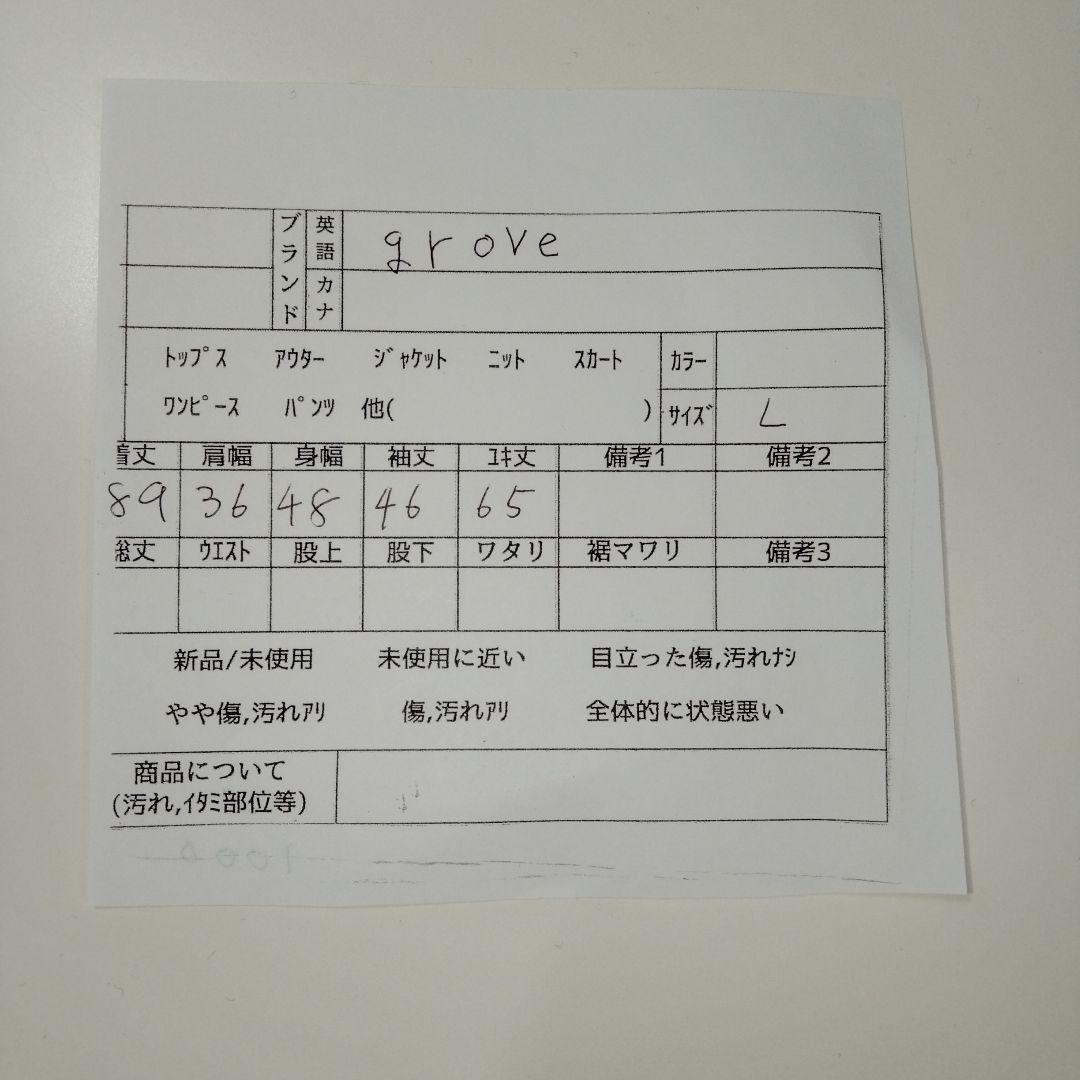 ブランド 英語 grove
カナ
トップス アウター ジャケット ニット スカート カラー
ワンピース パンツ 他( ) サイズ L
着丈 肩幅 身幅 袖丈 ユキ丈 備考1 備考2
89 36 48 46 65
総丈 ウエスト 股上 股下 ワタリ 裾マワリ 備考3
新品/未使用 未使用に近い 目立った傷,汚れナシ
やや傷,汚れアリ 傷,汚れアリ 全体的に状態悪い
商品について
(汚れ,イタミ部位等)